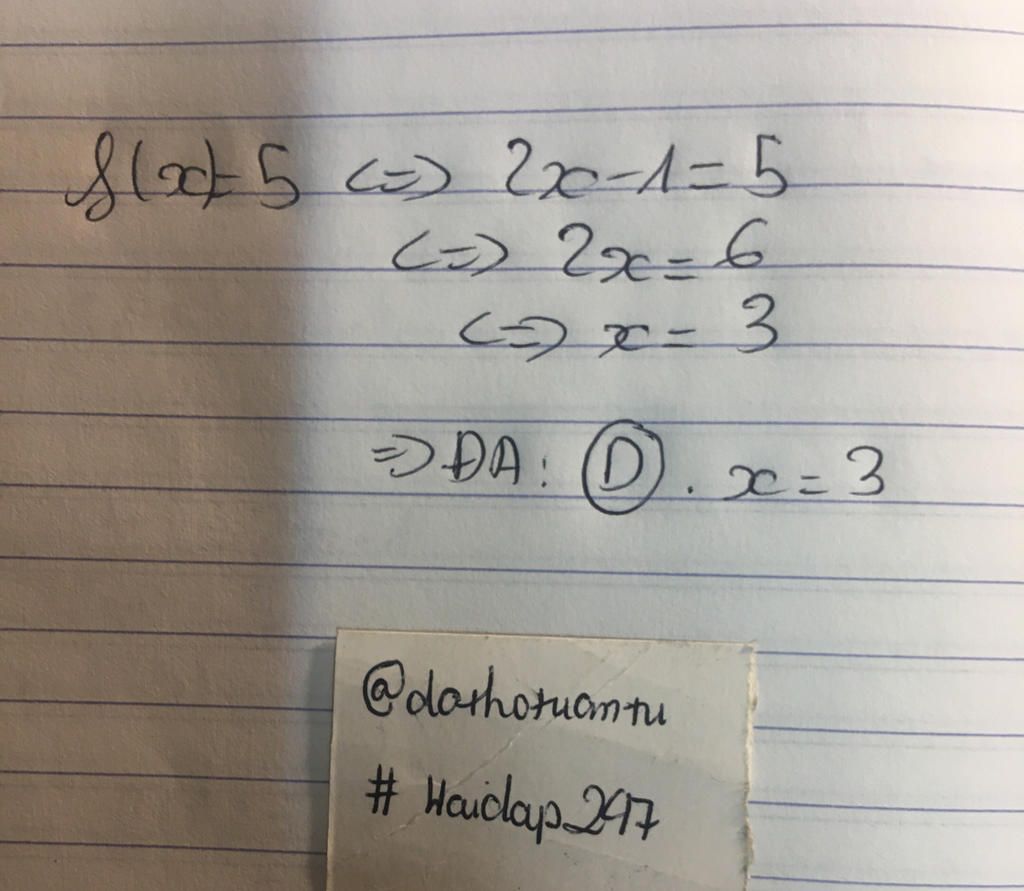 f(x)=5 <=> 2x-1=5
<=> 2x=6
<=> x=3
=> ĐA: D. x=3
@dathotuantu
# Hoidap247